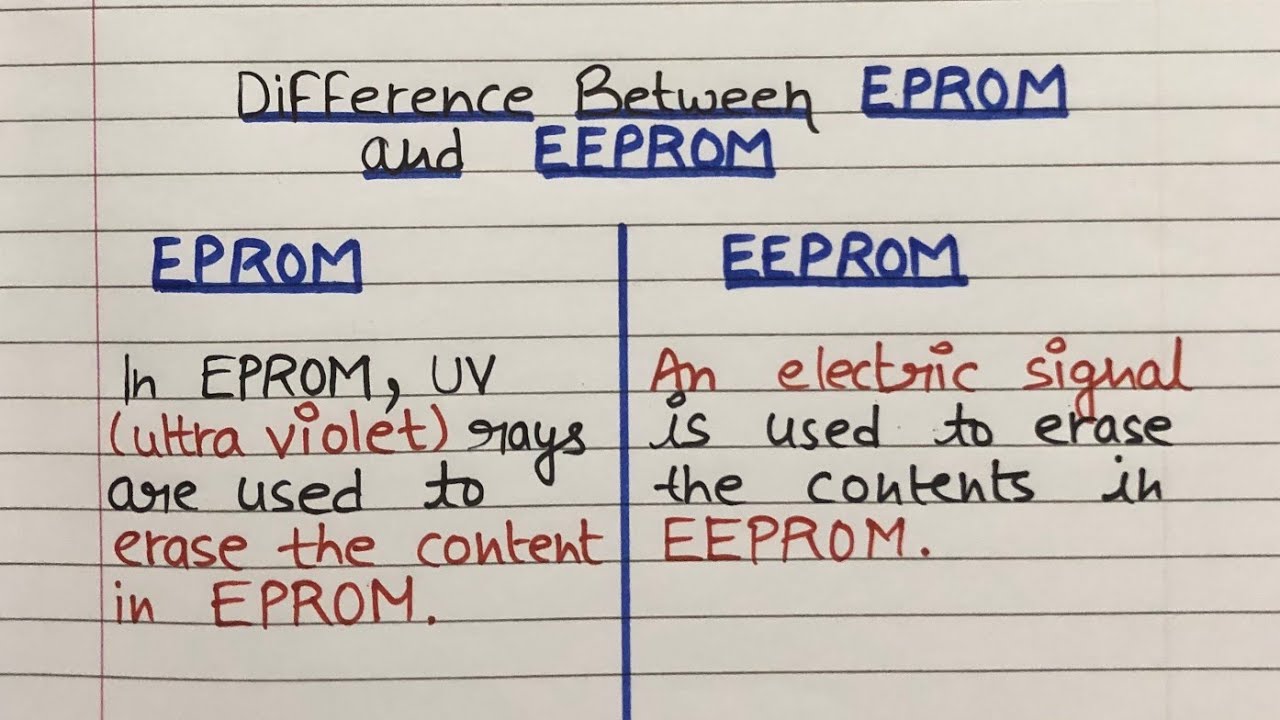 Difference Between EPROM
and EEPROM
EPROM
In EPROM, UV
(ultra violet) rays
are used to
erase the content
in EPROM.
EEPROM
An electric signal
is used to erase
the contents in
EEPROM.